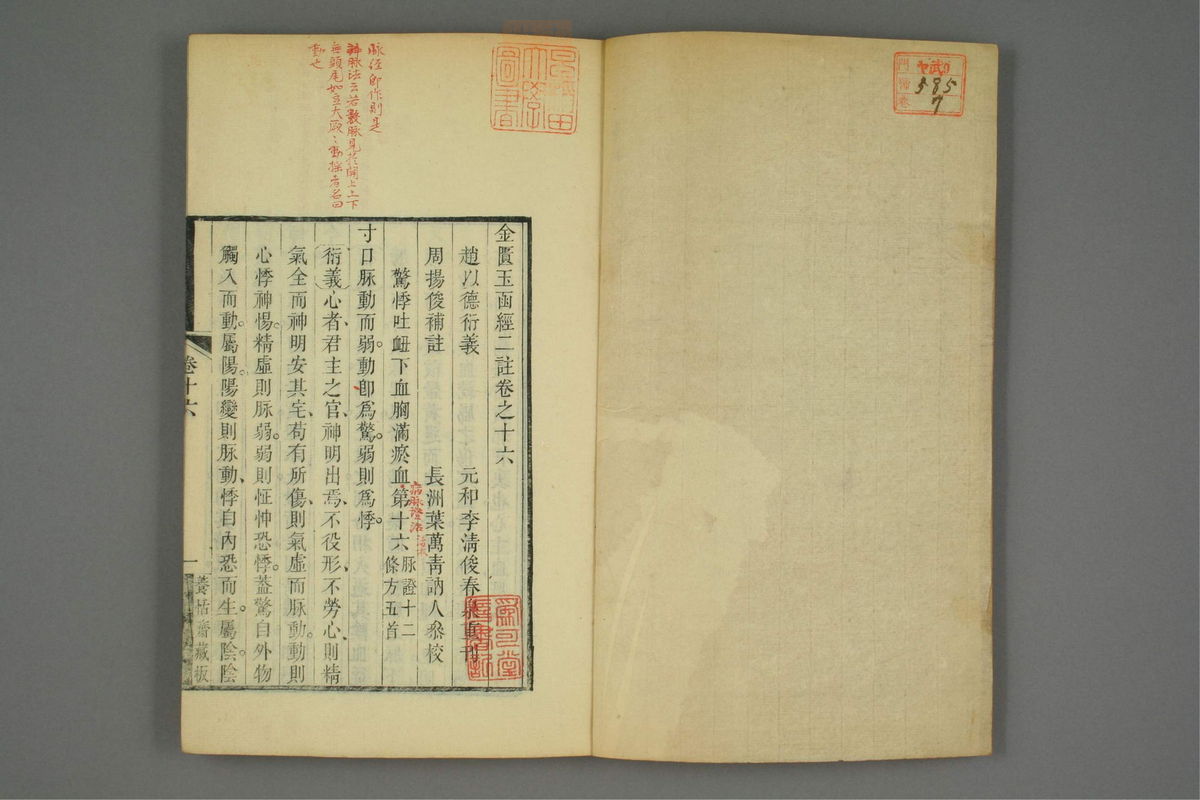 武ヤ
門
卷
585
7
早稻田
大學
圖書
脉经即作則是
辨脉法云若數脉見於関上上下
無頭尾如豆大厥〻動揺者名曰
動也
金匱玉函經二註卷之十六
趙以德衍義 元和李清俊春泉重刊
周揚俊補註 長洲葉萬青訥人叅校
驚悸吐衄下血胸滿瘀血第十六 脉證十二條方五首
病脉證治
寸口脉動而弱。動卽爲驚。弱則爲悸。
衍義心者、君主之官、神明出焉、不役形、不勞心、則精
氣全而神明安其宅、苟有所傷、則氣虛而脉動。動則
心悸神惕。精虛則脉弱。弱則怔忡恐悸。蓋驚自外物
觸入而動。屬陽。陽變則脉動、悸自內恐而生。屬陰。陰
卷十六
一
養恬齋藏板